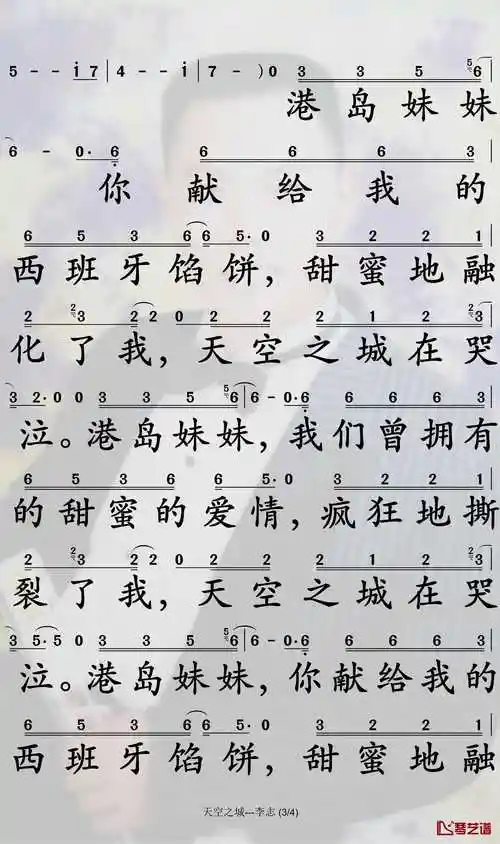 5 - - i 7 | 4 - - i | 7 - ) 0 3 3 5 5 6
港岛妹妹
6 - 0· 6 | 6 6 6 3 |
你献给我的
6 5 3 6 6 5· 0 3 2 2 1 |
西班牙馅饼，甜蜜地融
2 2 3 2 2 2 0 2 2 2 1 2 2 3 |
化了我，天空之城在哭
3 2· 0 0 3 3 5 5 6 | 6 - 0· 6 6 6 6 3 |
泣。港岛妹妹，我们曾拥有
6 5 3 6 6 5· 0 3 2 2 1 |
的甜蜜的爱情，疯狂地撕
2 2 3 2 2 0 2 2 2 1 2 2 3 |
裂了我，天空之城在哭
3 5· 5 0 3 3 5 5 6 | 6 - 0· 6 6 6 6 3 |
泣。港岛妹妹，你献给我的
6 5 3 6 6 5· 0 3 2 2 1 |
西班牙馅饼，甜蜜地融
天空之城---李志 (3/4)
琴艺谱